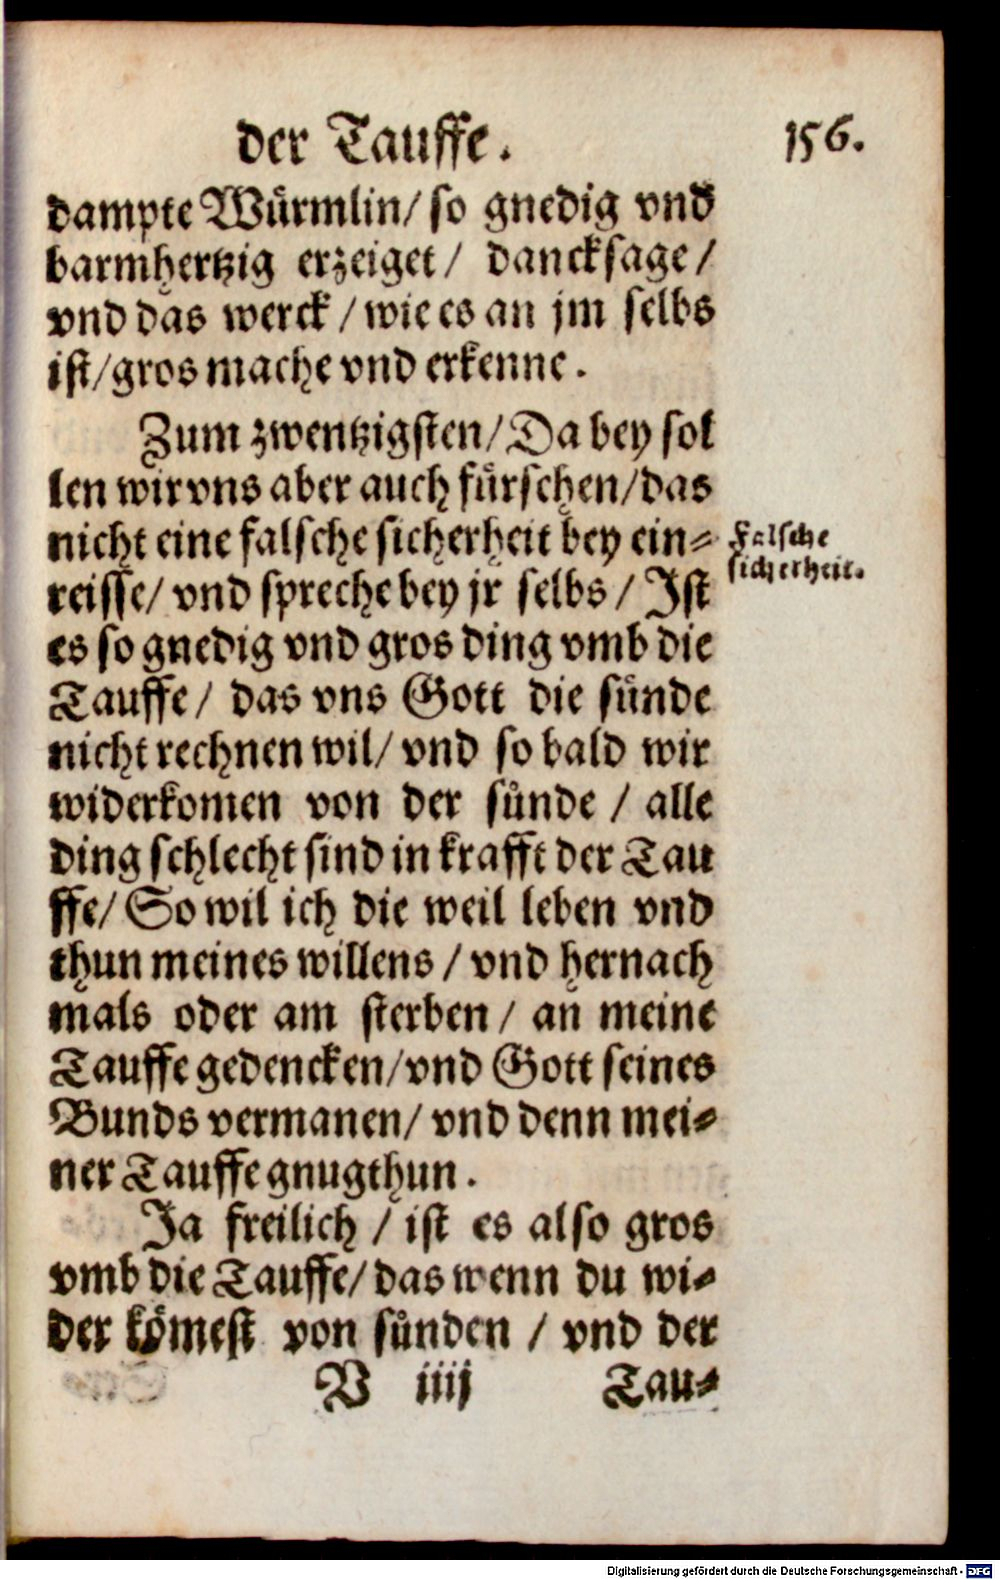 der Tauffe. 156.
dampte Wuͤrmlin/ so gnedig vnd
barmhertzig erzeiget/ dancksage/
vnd das werck/ wie es an jm selbs
ist/ gros mache vnd erkenne.
Zum zwentzigsten/ Da bey sol
len wir vns aber auch fuͤrsehen/ das
nicht eine falsche sicherheit bey ein⸗
Falsche
sicherheit.
reisse/ vnd spreche bey jr selbs/ Ist
es so gnedig vnd gros ding vmb die
Tauffe/ das vns Gott die suͤnde
nicht rechnen wil/ vnd so bald wir
widerkomen von der suͤnde/ alle
ding schlecht sind in krafft der Tau
ffe/ So wil ich die weil leben vnd
thun meines willens/ vnd hernach
mals oder am sterben/ an meine
Tauffe gedencken/ vnd Gott seines
Bunds vermanen/ vnd denn mei⸗
ner Tauffe gnugthun.
Ja freilich/ ist es also gros
vmb die Tauffe/ das wenn du wi⸗
der koͤmest von suͤnden/ vnd der
V iiij Tau⸗
Digitalisierung gefördert durch die Deutsche Forschungsgemeinschaft - DFG